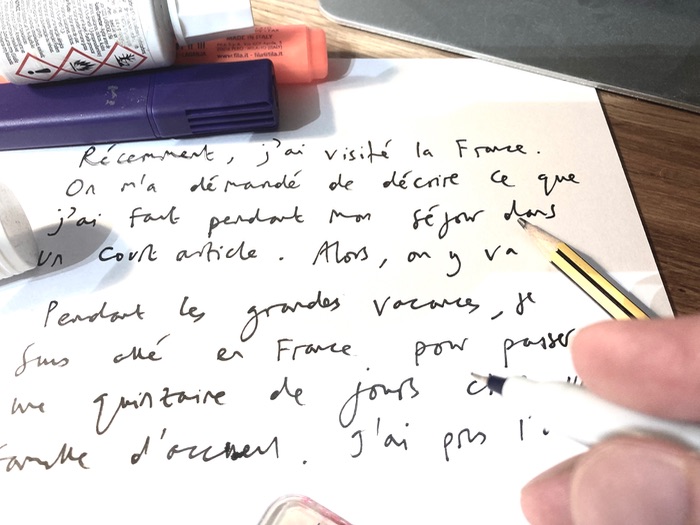 MADE IN ITALY
www.fila.it
Récemment, j'ai visité la France.
On m'a démandé de décrire ce que
j'ai fait pendant mon séjour dans
un court article. Alors, on y va
Pendant les grandes vacances, je
suis allé en France pour passer
une quinzaine de jours
famille d'accueil. J'ai pris l'